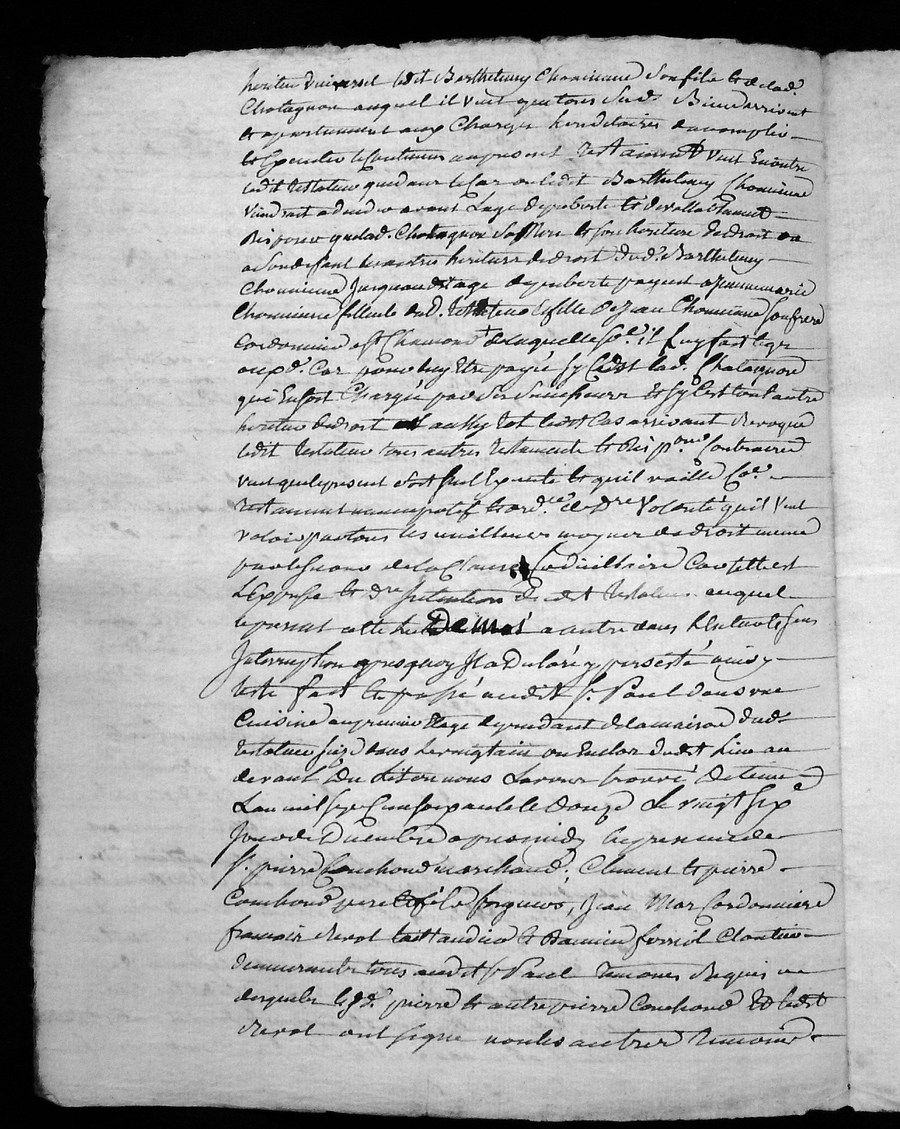 heritier universel ledit Barthelemy Chomienne son fils & de lad.
Chatagnon auquel il veut que tous sesd. Biens arrivent
& apartiennent aux Charges hereditaires daccomplir
& Executer le Contenu au present testament veut Encore
ledit testateur que dans le Cas ou ledit Barthelemy Chomienne
viendroit a deceder avant Lage de puberté &
disposer que lad. Chatagnon sa Mere & son heritiere de droit ou
a son defaut les autres heritiers de droit dud. Barthelemy
Chomienne Jusques aud. age de puberté payent a Jeanne marie
Chomienne filleule dud. testateur & fille de Jean Chomienne son frere
Cordonnier a St Chamond de laquelle il luy fait legs
auxd. Cas pour luy Etre payée sy C'est lad. Chatagnon
qui En soit Chargée par ses successeurs & sy C'est tout autre
heritier de droit aussy tot ledit Cas arrivant Revoque
ledit testateur tous autres testaments & disp.ons Contraires
veut que le present soit seul Executé & quil vaille
testament nuncupatif & ord.ce de dre volonté qu'il veut
valoir par tous les meilleurs moyens de droit meme
par le forme de la Clause Codicillaire Car telle est
& dre Intention dudit testateur auquel
le present a été leu a autre dans
Interruption apres quoy Il a declaré y persisté ainsy
fait & passé audit St Paul dans une
Cuisine au premier Etage dependant de la maison dudt
testateur size dans le vingtain ou Enclos dudit Lieu au
devant du Lit ou nous Lavons trouvé detenu
Lan mil sept Cent soixante & douze Le vingt six
Jour de Decembre apres midy En presence de
Sr pierre Couchoud marchand, Clement & pierre
Combaud pere & fils forgeurs, Jean Mar Cordonnier
francois Revol & Damien ferriol Cloutier
demeurants tous audit St Paul temoins Requis
desquels led. pierre & autre pierre Couchoud & ledit
Revol ont signé non les autres temoins